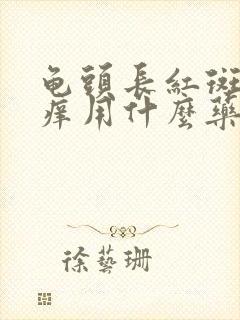 龟頭長紅斑
痒用什麼藥
徐藝珊